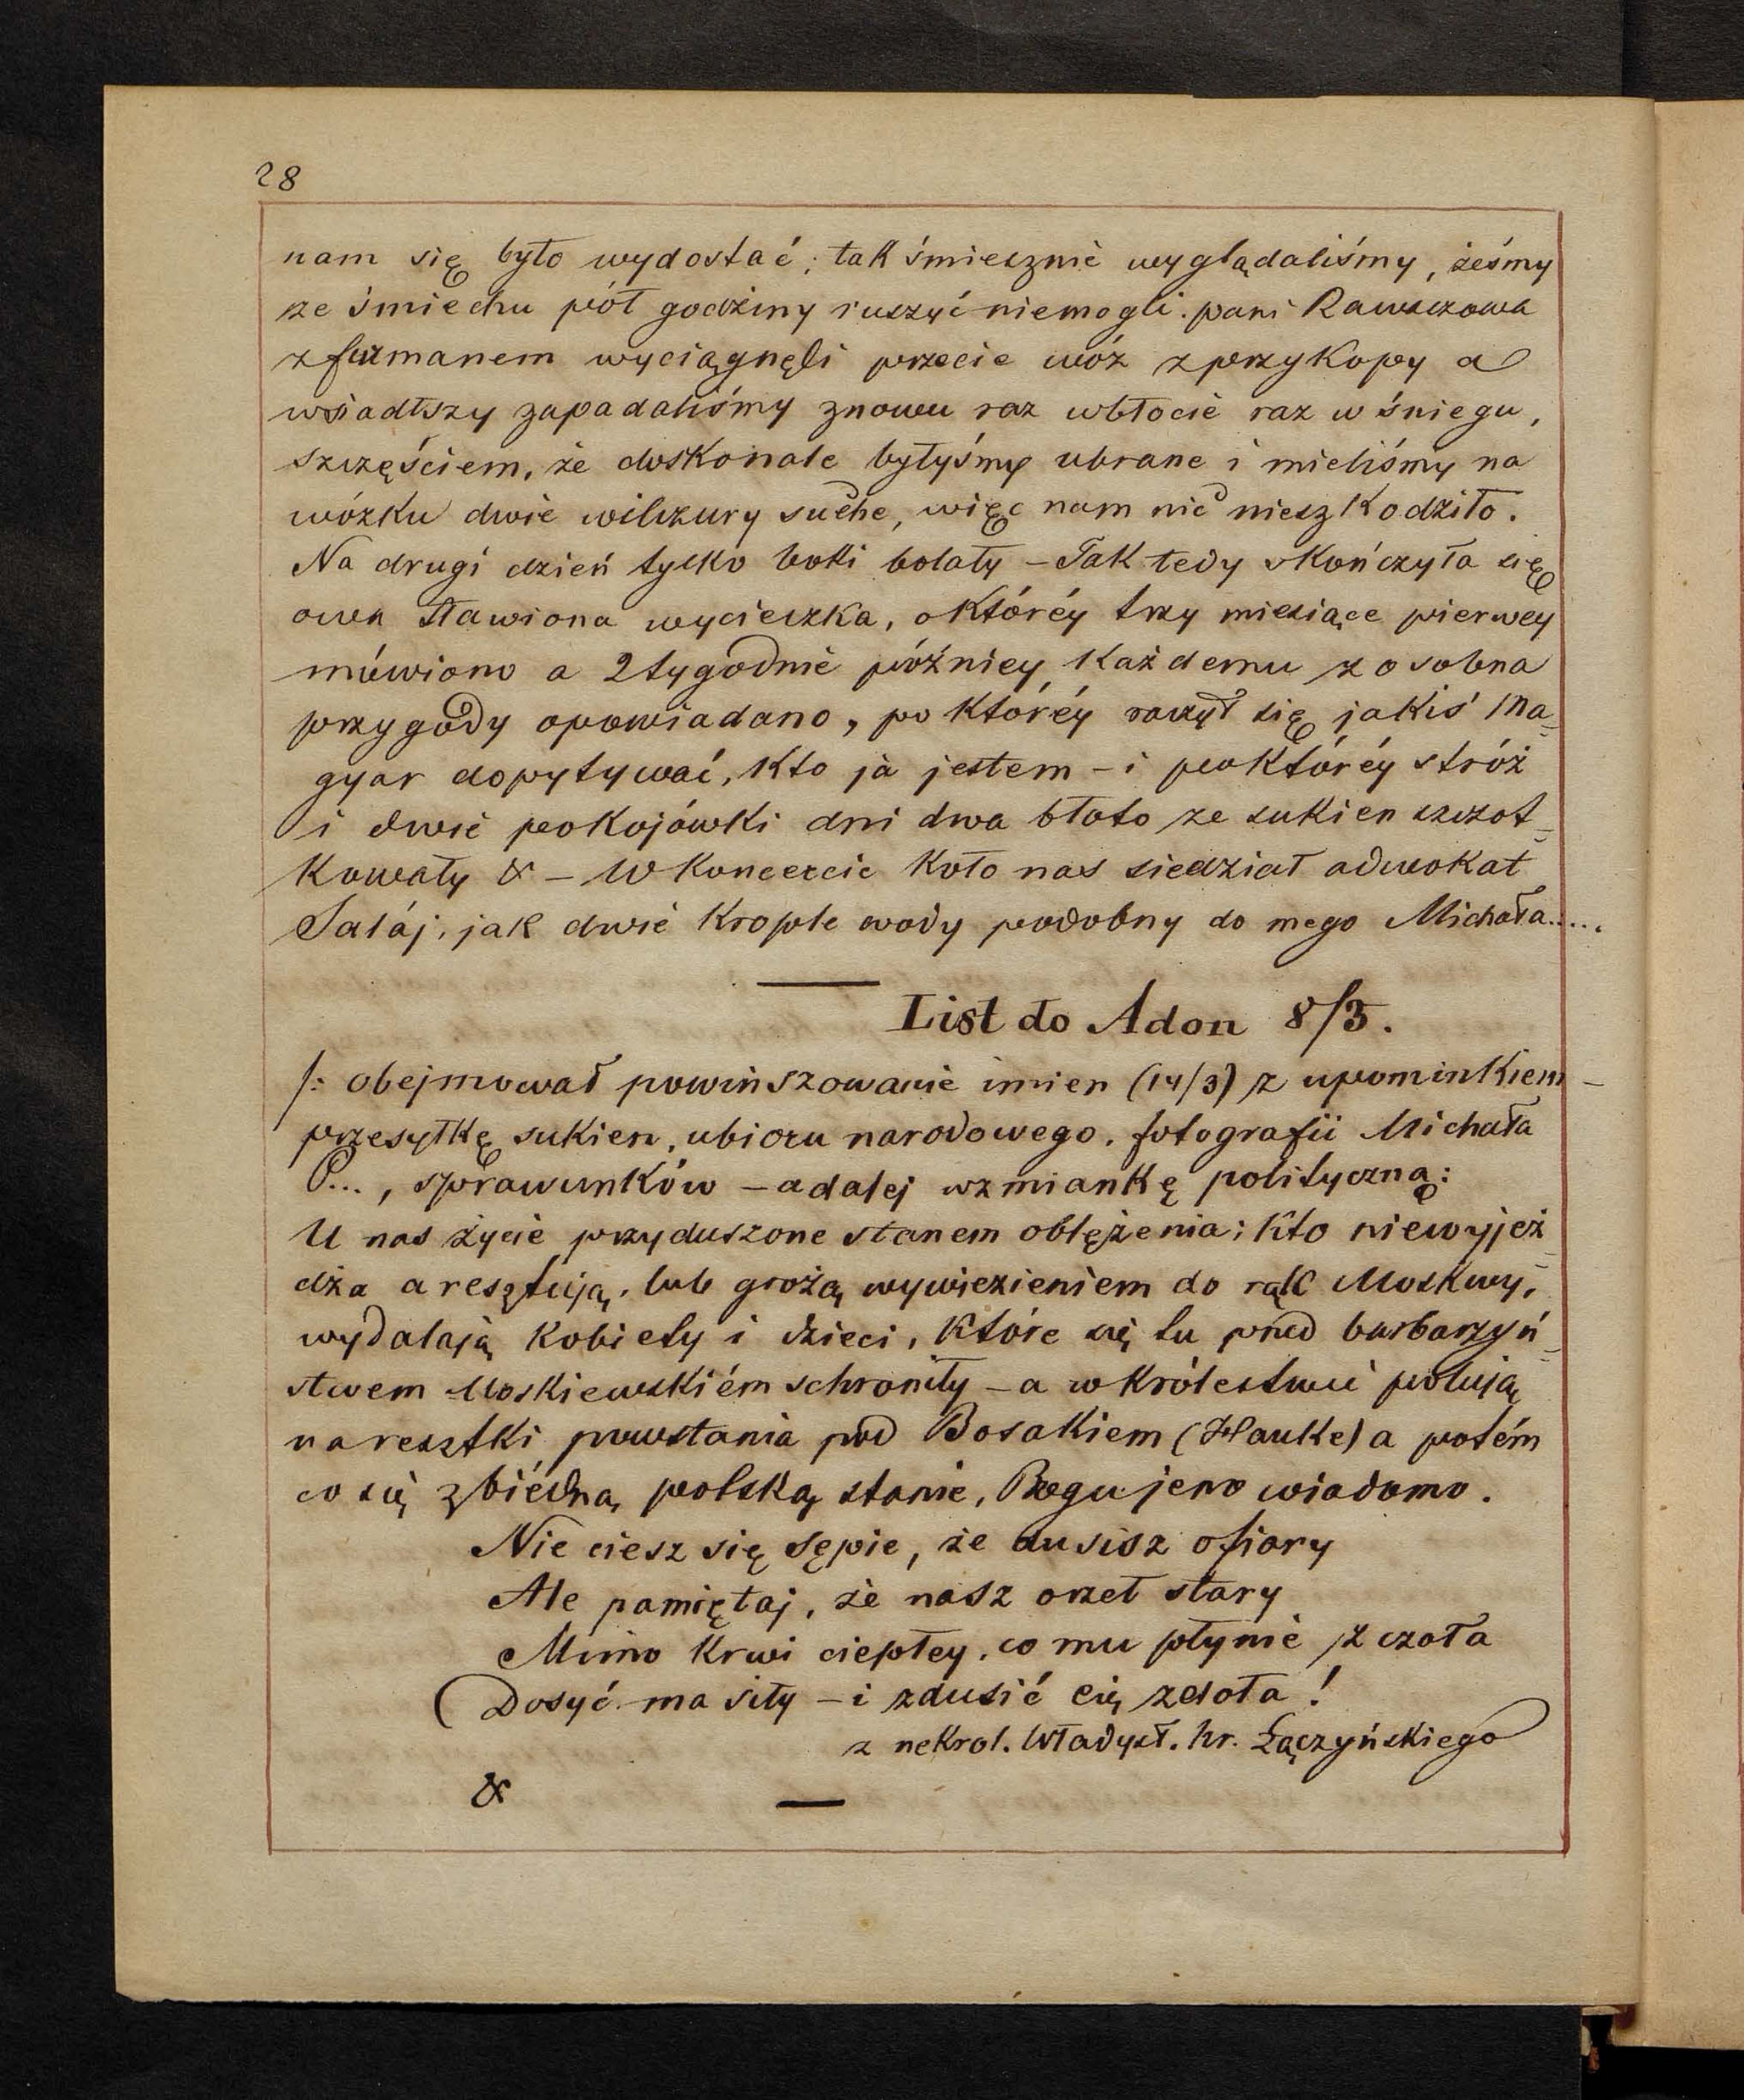 28
nam się było wydostać; tak śmiesznie wyglądaliśmy, żeśmy
ze śmiechu pół godziny ruszyć niemogli. pani Rawiczowa
z furmanem wyciągnęli przecie wóz z przykopy a
wsiadłszy zapadaliśmy znowu raz wbłocie raz w śniegu,
szczęściem, że doskonale byłyśmy ubrane i mieliśmy na
wózku dwie wilczury suche, więc nam nic nieszkodziło.
Na drugi dzień tylko boki bolały – Tak tedy skończyła się
owa sławiona wycieczka, o któréy trzy miesiące pierwey
mówiono a 2 tygodnie późniey każdemu z osobna
przygody opowiadano, po któréy raczył się jakiś Ma=
gyar dopytywać, kto ja jestem – i po któréy stróż
i dwie pokojówki dni dwa błoto ze sukien szczot=
kowały & – W koncercie koło nas siedział adwokat
Salaj, jak dwie krople wody podobny do mego Michała.....
List do Adon 8/3.
/: obejmował powinszowanie imien (14/3) z upominkiem –
przesyłkę sukien, ubioru narodowego, fotografii Michała
P..., sprawunków – a dalej wzmiankę polityczną:
U nas życie przyduszone stanem oblężenia; kto niewyjeż=
dża aresztują, lub grożą wywiezieniem do rąk Moskwy,
wydalają kobiety i dzieci, które się tu przed barbarzyń=
stwem Moskiewskiém schroniły – a w królestwie polują
na resztki powstania pod Bosakiem (Hauke) a potém
co się z biédną polską stanie, Bogu jeno wiadomo.
Nie ciesz się sępie, że dusisz ofiary
Ale pamiętaj, że nasz orzeł stary
Mimo krwi ciepłey, co mu płynie z czoła
Dosyć ma siły – i zdusić cię zdoła!
z nekrol. Władysł. hr. Łączyńskiego
&